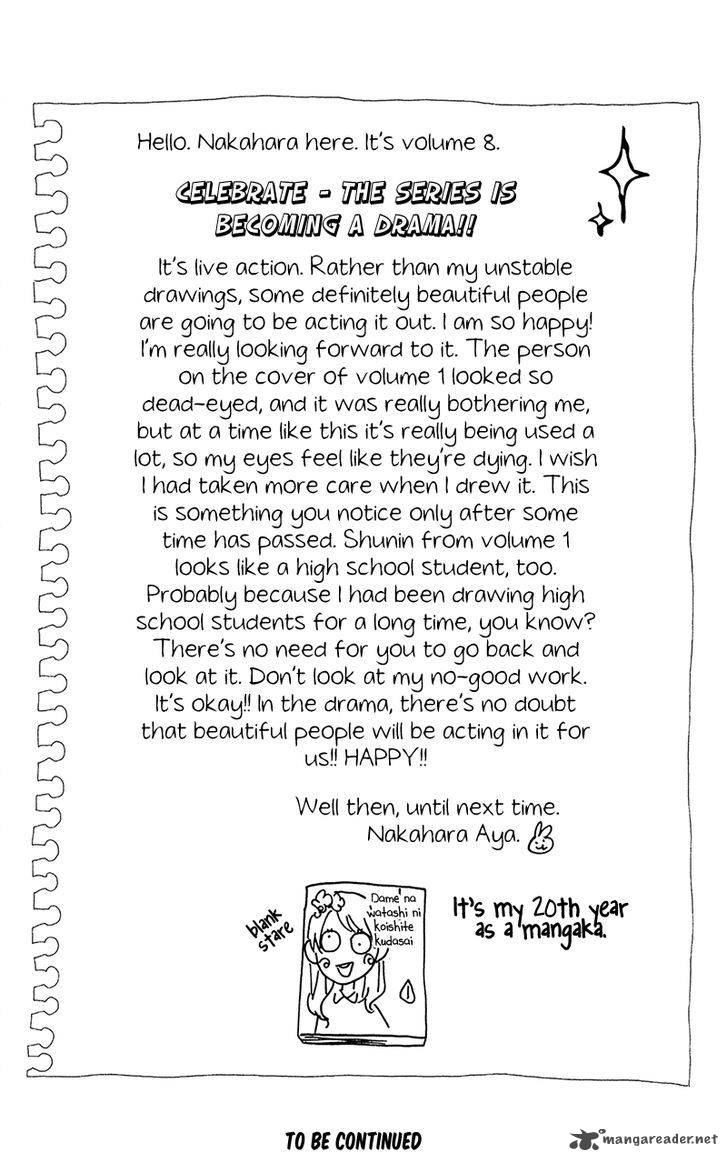 Hello. Nakahara here. It's volume 8.
CELEBRATE - THE SERIES IS
BECOMING A DRAMA!!
It's live action. Rather than my unstable
drawings, some definitely beautiful people
are going to be acting it out. I am so happy!
I'm really looking forward to it. The person
on the cover of volume 1 looked so
dead-eyed, and it was really bothering me,
but at a time like this it's really being used a
lot, so my eyes feel like they're dying. I wish
I had taken more care when I drew it. This
is something you notice only after some
time has passed. Shunin from volume 1
looks like a high school student, too.
Probably because I had been drawing high
school students for a long time, you know?
There's no need for you to go back and
look at it. Don't look at my no-good work.
It's okay!! In the drama, there's no doubt
that beautiful people will be acting in it for
us!! HAPPY!!
Well then, until next time.
Nakahara Aya.
blank
stare
Dame na
watashi ni
koishite
kudasai
1
It's my 20th year
as a mangaka.
TO BE CONTINUED
mangareader.net